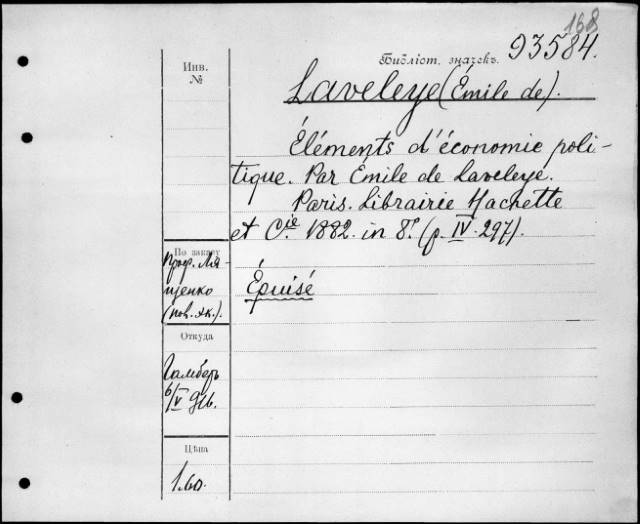 168
Библіот. значекъ. 93584.
Инв.
№
Laveleye (Émile de).
Éléments d'économie poli-
tique. Par Émile de Laveleye.
Paris. Librairie Hachette
et Cie. 1882. in 8º. (p. IV-297).
По заказу
Проф. Ля-
щенко
Épuisé
Откуда
6/V 916.
Цѣна
1.60.